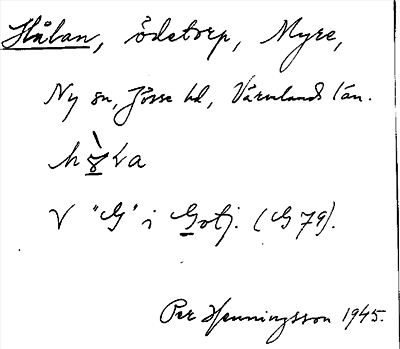 Hålan, ödetorp, Myre,
Ny sn, Jösse hd, Värmlands län.
V "G" i Gotj. (G 79).
Per Henningsson 1945.